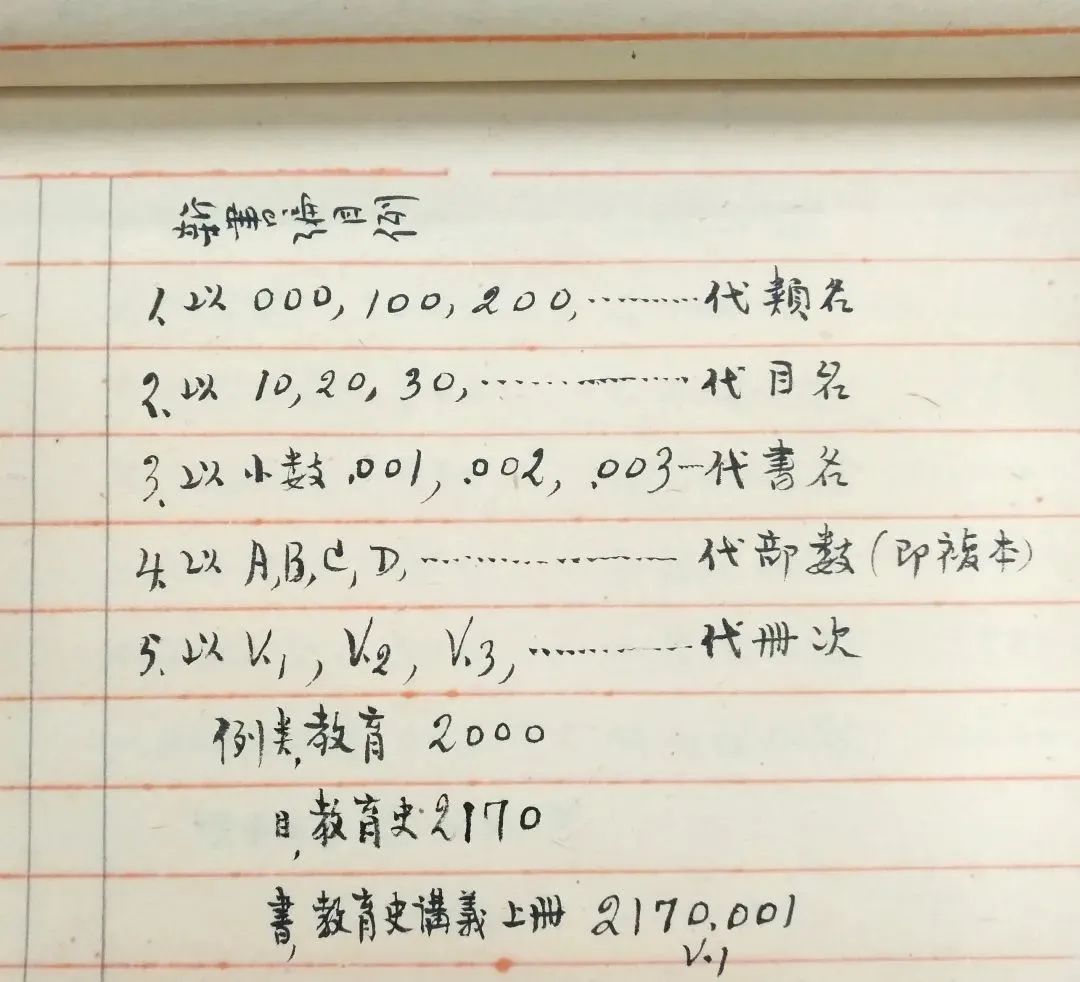 新書編目例
1. 以 000, 100, 200, ………代類名
2. 以 10, 20, 30, ……………代目名
3. 以小数 .001, .002, .003…代書名
4. 以 A, B, C, D, ………………代部数(即複本)
5. 以 V.1, V.2, V.3, …………代冊次
例类, 教育 2000
目, 教育史 2170
書, 教育史講義上冊 2170.001
V.1